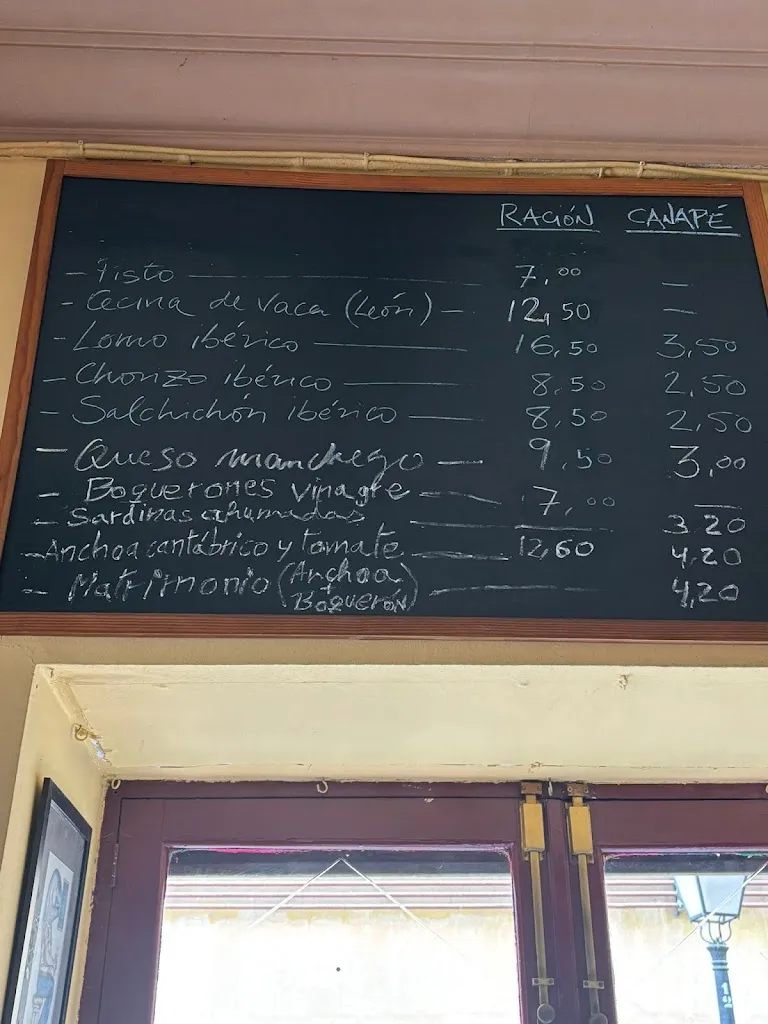 RACIÓN CANAPÉ
- Pisto — 7,00 —
- Cecina de Vaca (León) — 12,50 —
- Lomo ibérico — 16,50 3,50
- Chorizo ibérico — 8,50 2,50
- Salchichón ibérico — 8,50 2,50
- Queso manchego — 9,50 3,00
- Boquerones vinagre — 7,00 —
- Sardinas ahumadas — — 3.20
- Anchoa cantábrico y tomate — 12,60 4,20
- Matrimonio (Anchoa + Boquerón) — 4,20
12